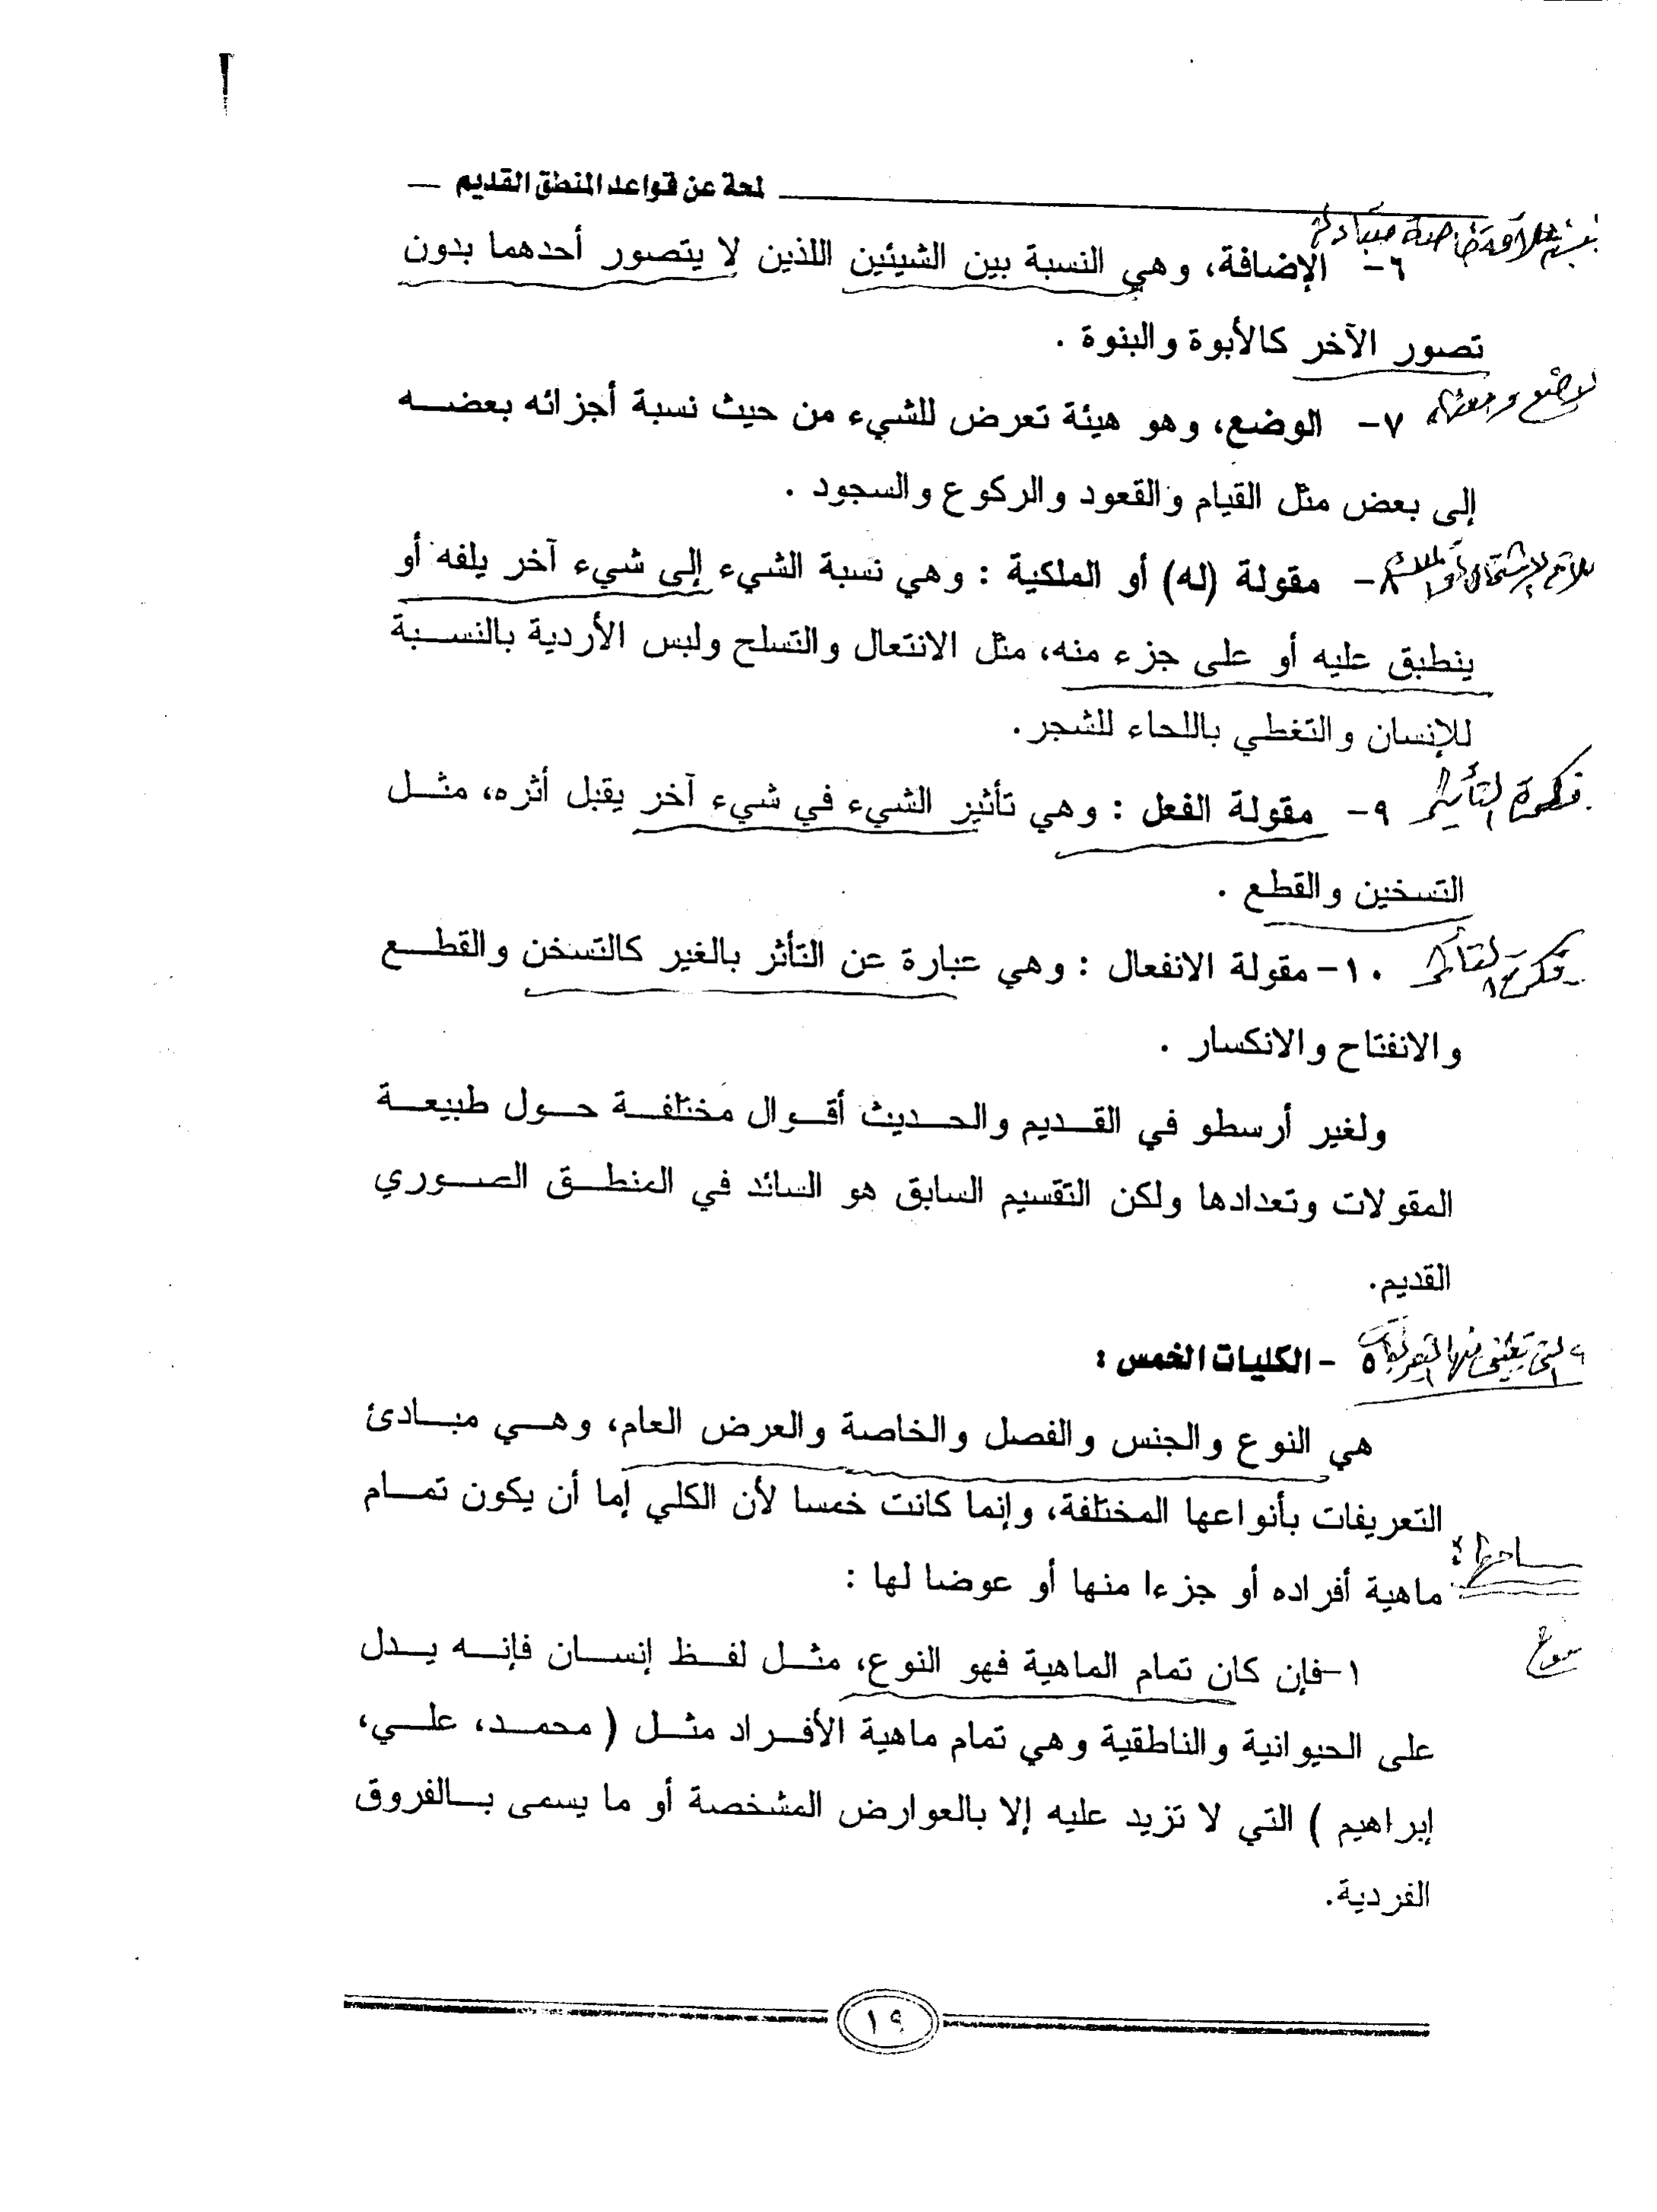 لمحة عن قواعد المنطق القديم
٦- الإضافة، وهي النسبة بين الشيئين اللذين لا يتصور أحدهما بدون
تصور الآخر كالأبوة والبنوة .
٧- الوضع، وهو هيئة تعرض للشيء من حيث نسبة أجزائه بعضه
إلى بعض مثل القيام والقعود والركوع والسجود .
٨- مقولة (له) أو الملكية : وهي نسبة الشيء إلى شيء آخر يلفه أو
ينطبق عليه أو على جزء منه، مثل الانتعال والتسلح ولبس الأردية بالنسبة
للإنسان والتغطي باللحاء للشجر.
٩- مقولة الفعل : وهي تأثير الشيء في شيء آخر يقبل أثره، مثل
التسخين والقطع .
١٠- مقولة الانفعال : وهي عبارة عن التأثر بالغير كالتسخن والقطع
والانفتاح والانكسار .
ولغير أرسطو في القديم والحديث أقوال مختلفة حول طبيعة
المقولات وتعدادها ولكن التقسيم السابق هو السائد في المنطق الصوري
القديم.
٥ - الكليات الخمس :
هي النوع والجنس والفصل والخاصة والعرض العام، وهي مبادئ
التعريفات بأنواعها المختلفة، وإنما كانت خمسا لأن الكلي إما أن يكون تمام
ماهية أفراده أو جزءا منها أو عوضا لها :
١-فإن كان تمام الماهية فهو النوع، مثل لفظ إنسان فإنه يدل
على الحيوانية والناطقية وهي تمام ماهية الأفراد مثل ( محمد، علي،
إبراهيم ) التي لا تزيد عليه إلا بالعوارض المشخصة أو ما يسمى بالفروق
الفردية.
١٩